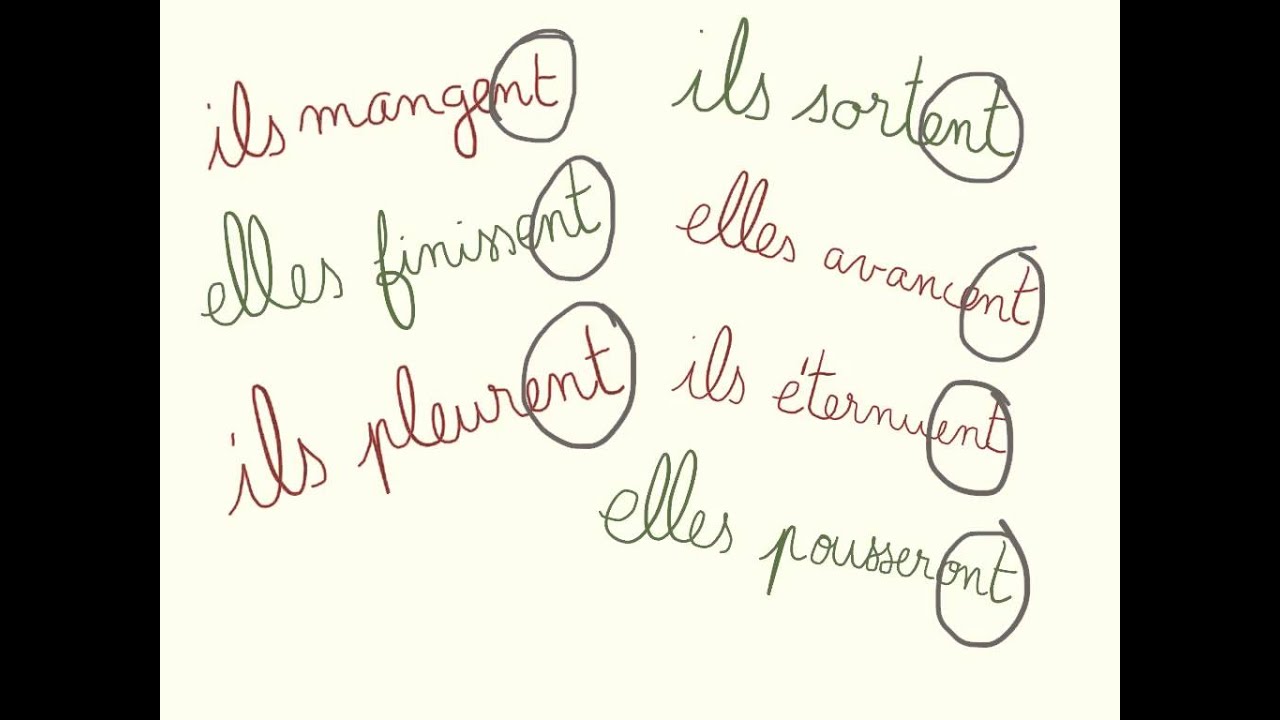 ils mangent
elles finissent
ils pleurent
ils sortent
elles avancent
ils éternuent
elles pousseront